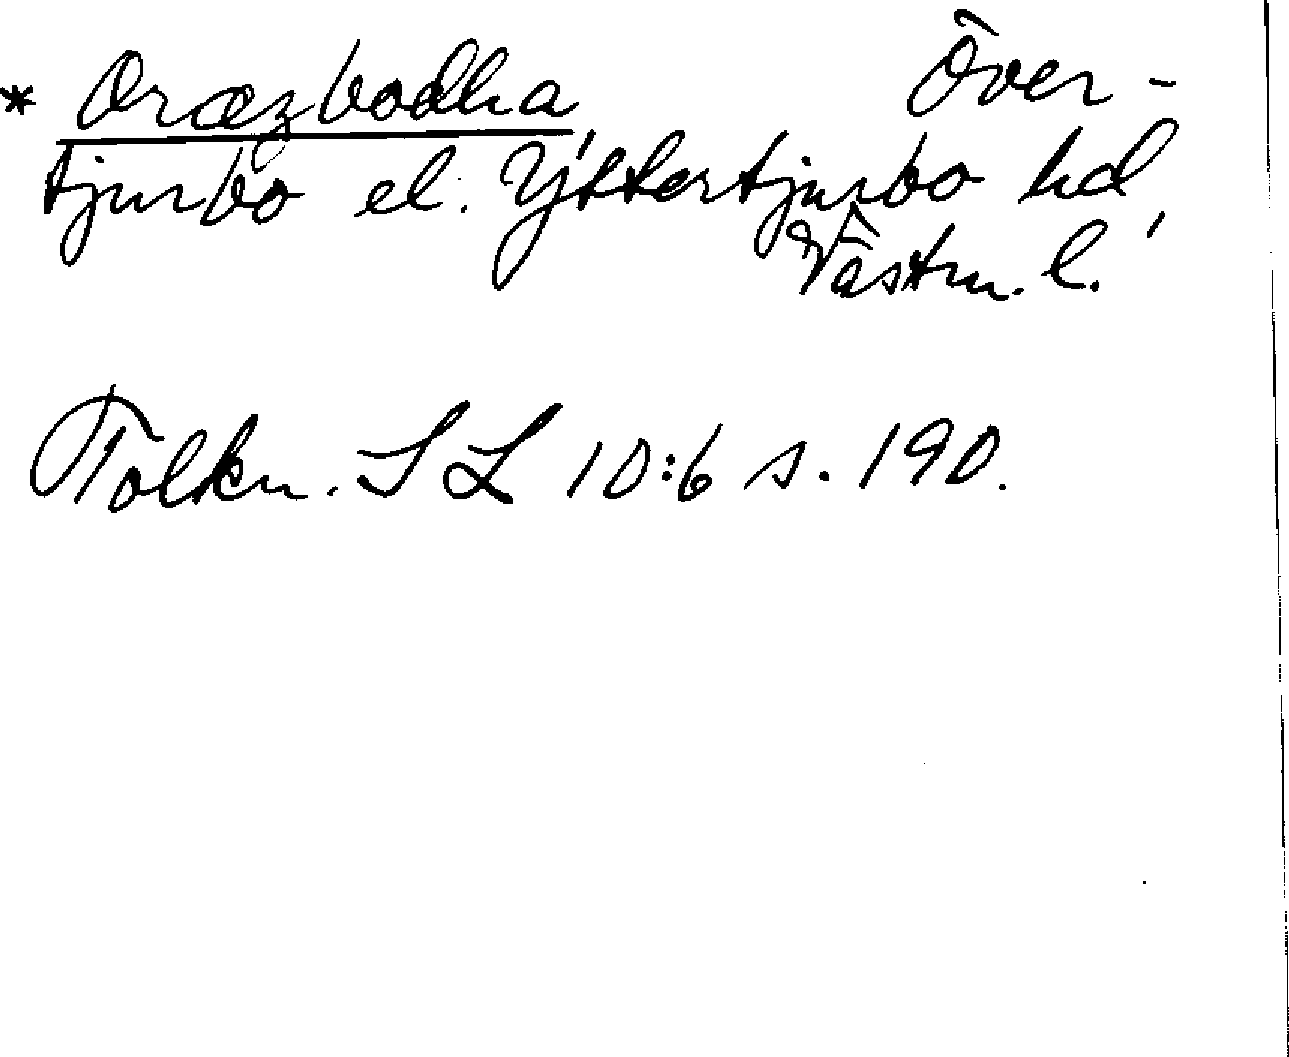 * Oræzbodha Över-
tjurbo el. Yttertjurbo hd,
Västm. l.
Tolkn. SL 10:6 s. 190.